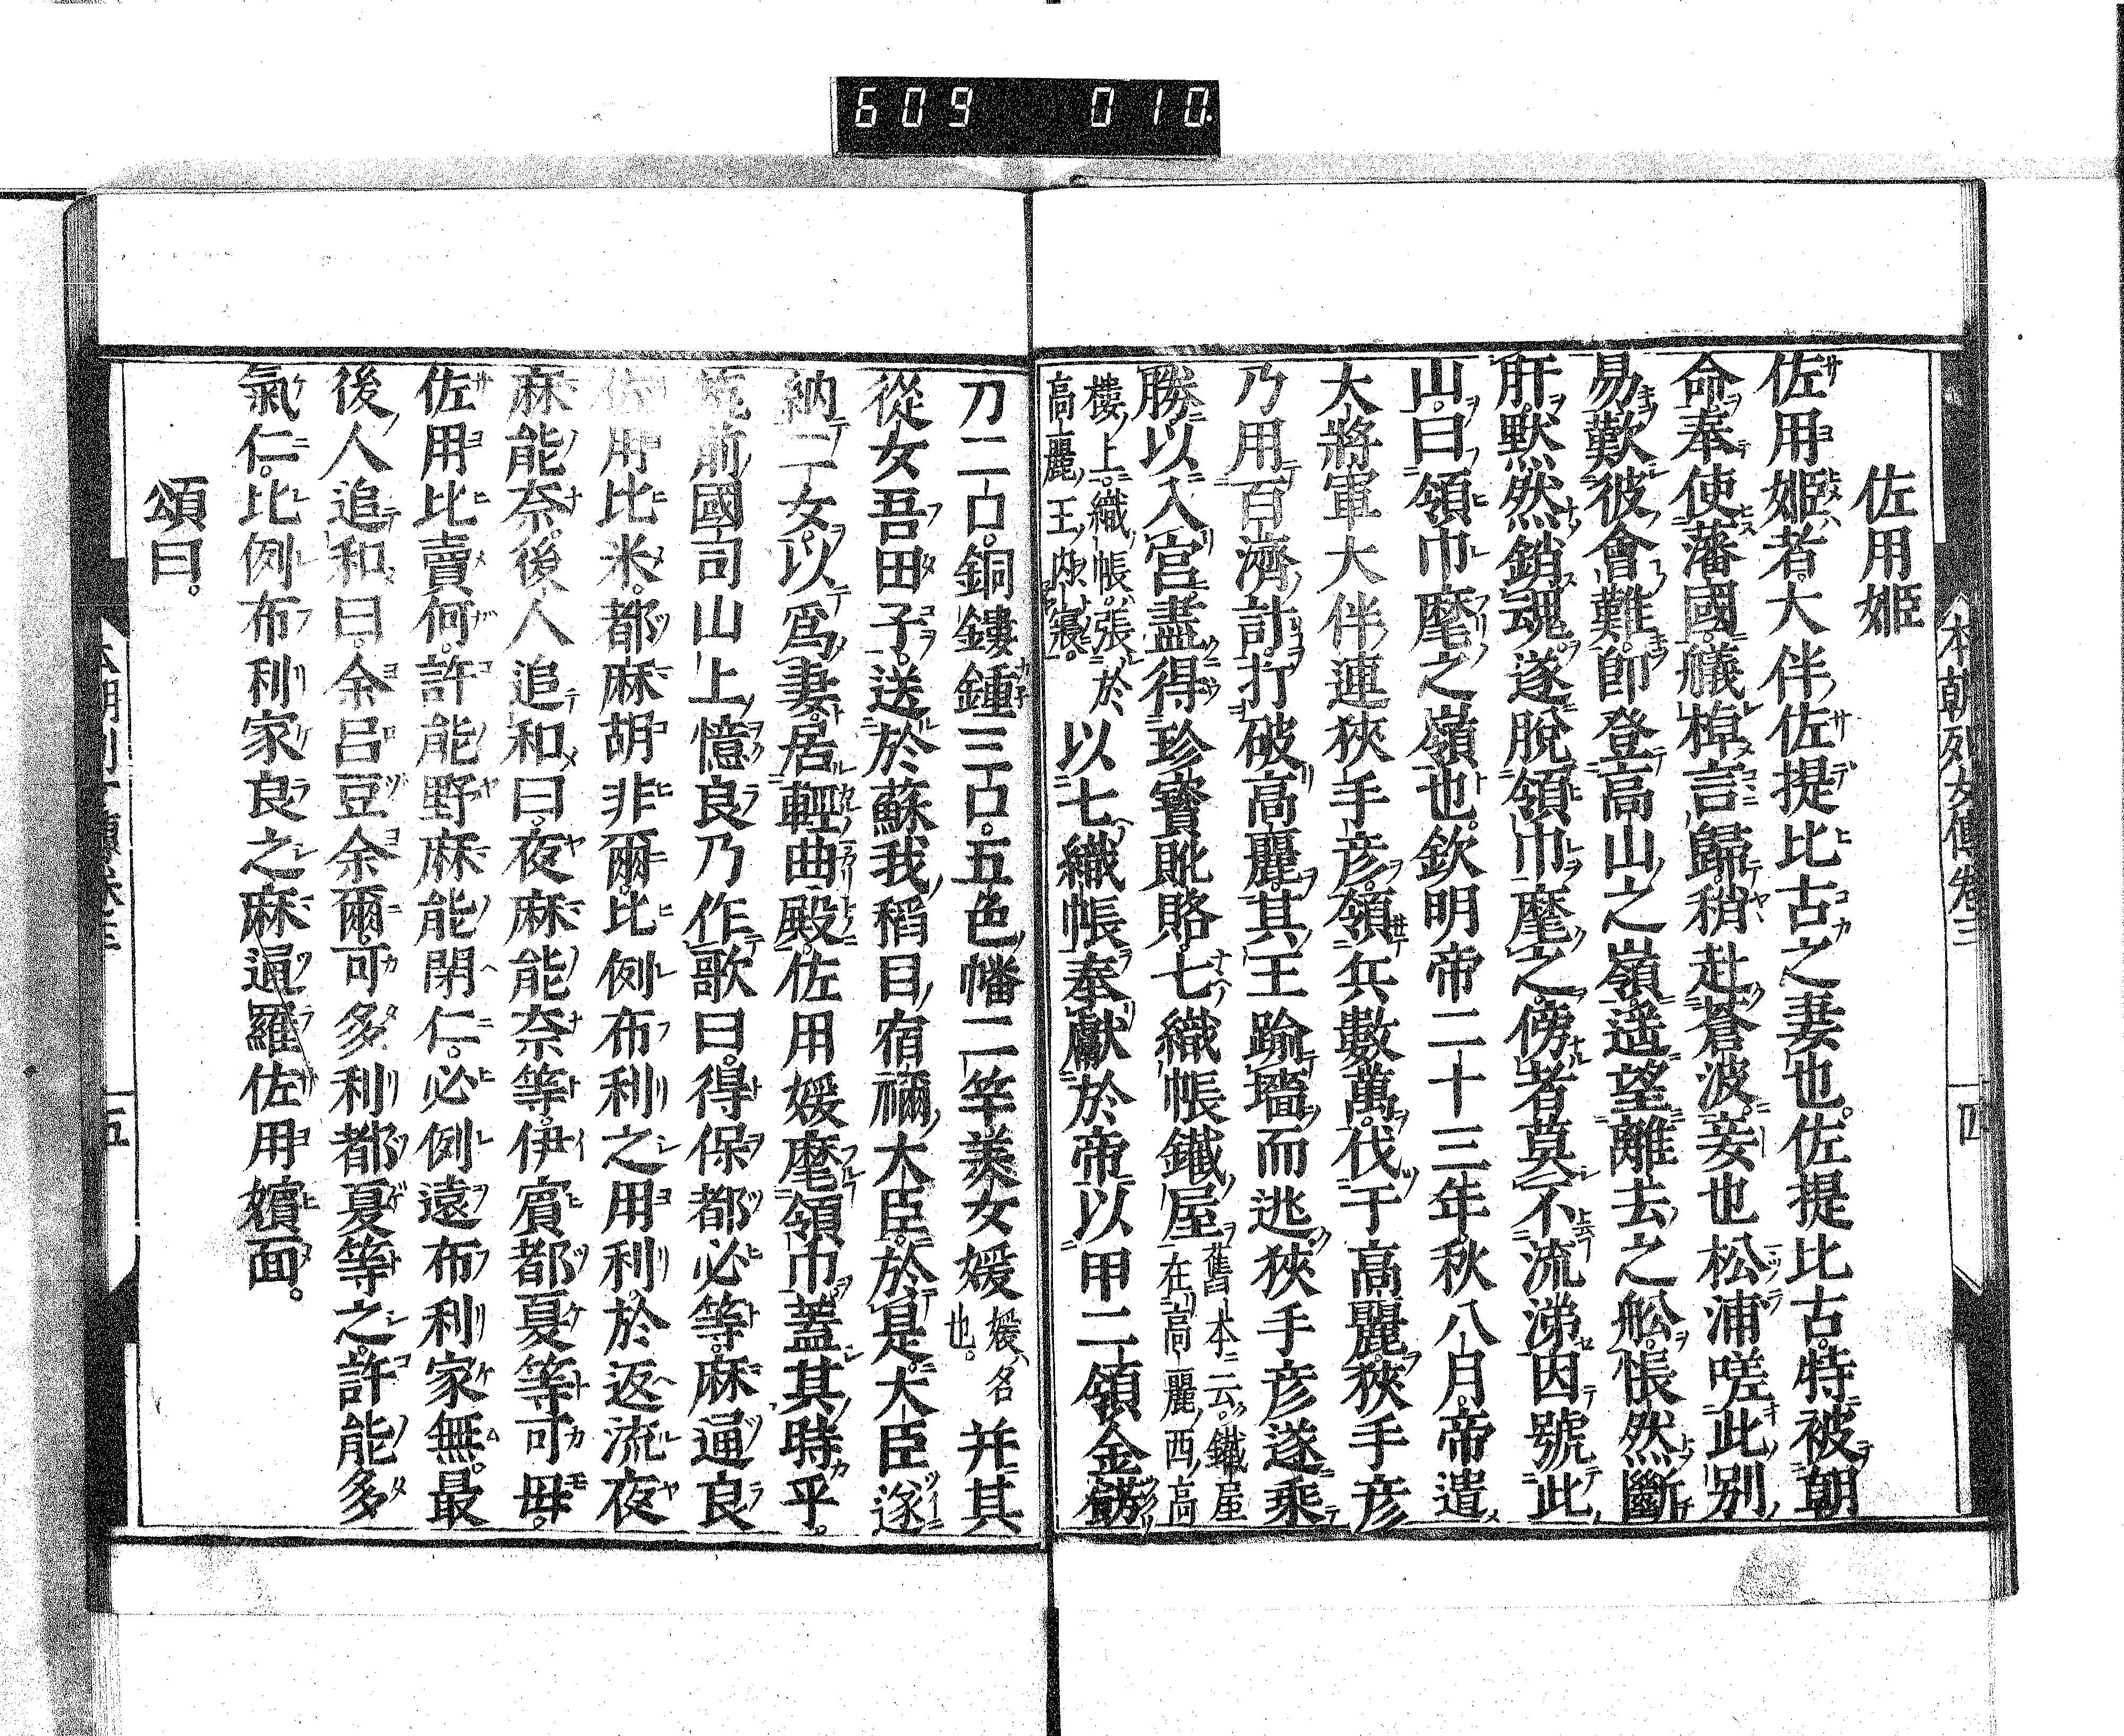 609 010
本朝列女傳卷三 四
佐用姬
佐用姬者大伴佐提比古之妻也。佐提比古。特被朝
命。奉使藩國。艤棹言歸。稍赴蒼波。妾也松浦嗟此別
易。歎彼會難。卽登高山之嶺。遥望離去之舩。悵然斷
肝。默然銷魂。遂脫領巾麾之。傍者莫不流涕。因號此
山。曰領巾麾之嶺也。欽明帝二十三年。秋八月。帝遣
大將軍大伴連狹手彦。領兵數萬。伐于高麗。狹手彦
乃用百濟計。打破高麗。其王踰墻而逃。狹手彦遂乘
勝。以入宮。盡得珍寶貨賂。七織帳鐵屋。舊本云。鐵屋
在高麗西高
樓上。織帳。張於
高麗王內寢。
以七織帳奉獻於帝。以甲二領金餝
刀二口。銅鏤鍾三口。五色幡二竿。美女媛媛名
也。
幷其
從女吾田子。送於蘇我稻目宿禰大臣。於是。大臣遂
納二女。以爲妻。居輕曲殿。佐用媛麾領巾蓋其時乎。
筑前國司山上憶良乃作歌曰。得保都必等。麻通良
佐用比米。都麻胡非爾。比例布利之用利。於返流夜
麻能奈。後人追和曰。夜麻能奈等。伊賓都夏等可毋。
佐用比賣何。許能野麻能閇仁。必例遠布利家無。最
後人追和曰。余呂豆余爾。可多利都夏等之。許能多
氣仁。比例布利家良之麻通羅佐用嬪面。
頌曰。
五